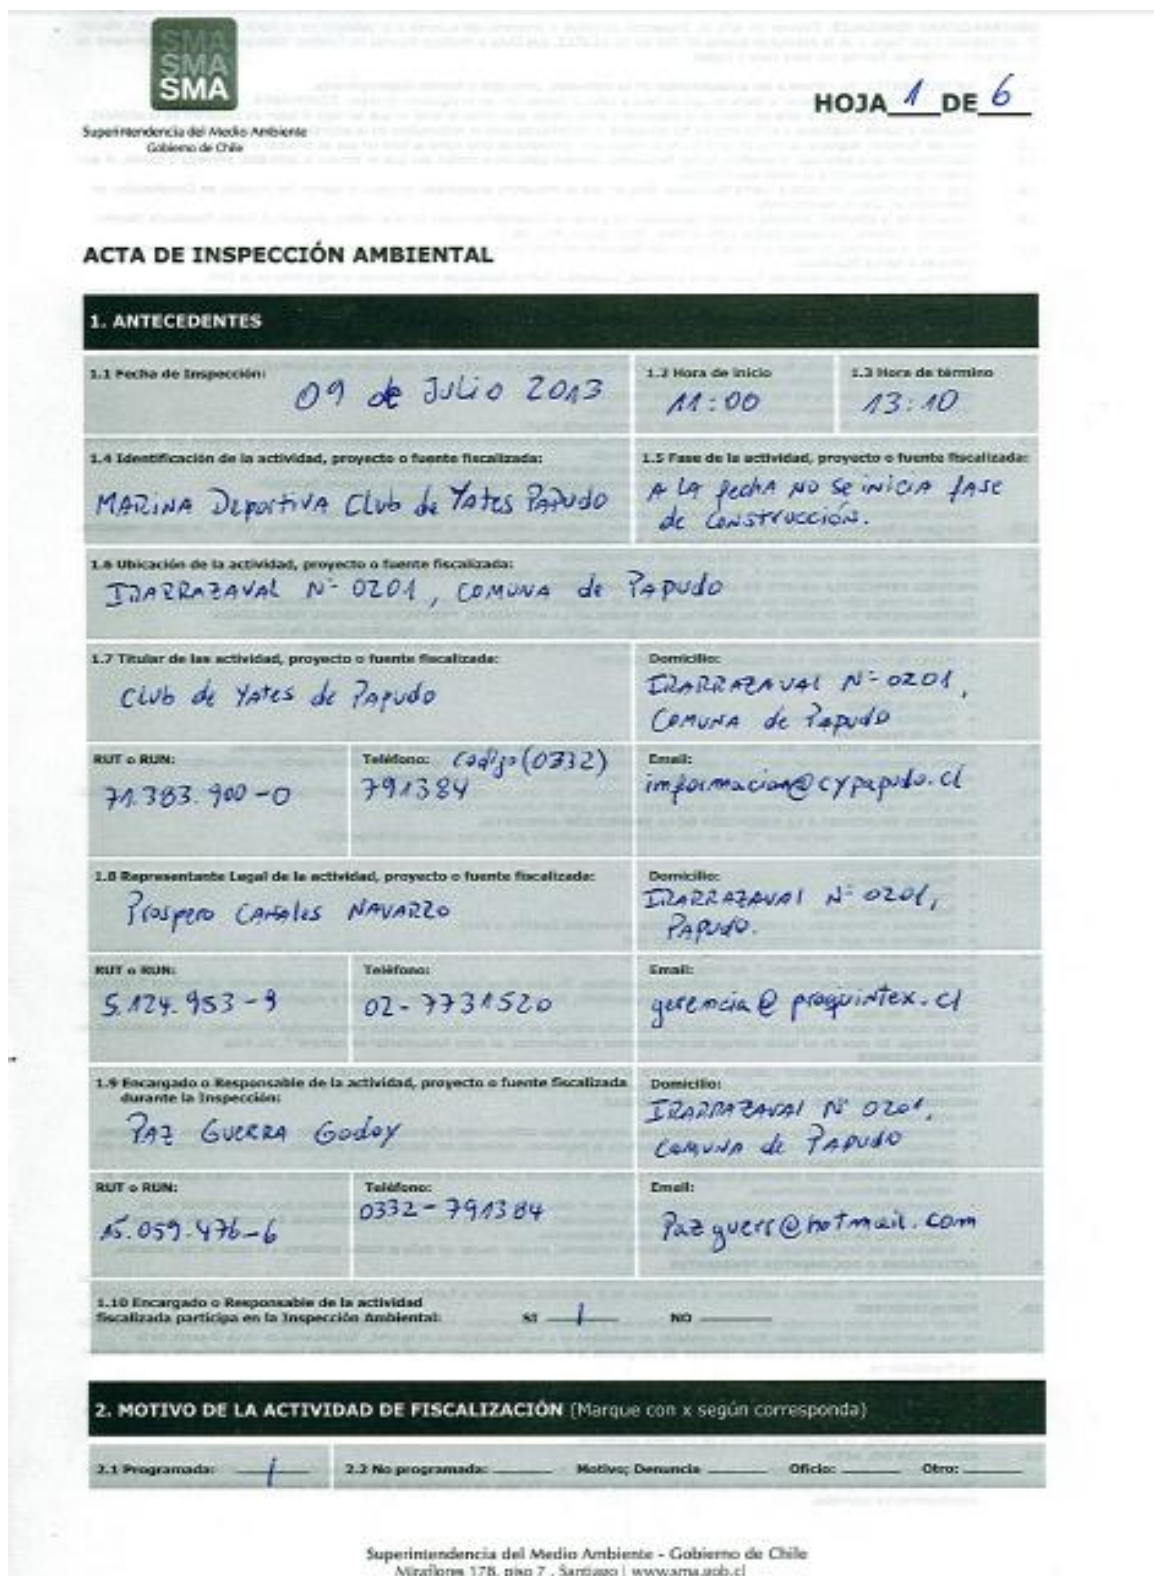 SMA
SMA
SMA
Superintendencia del Medio Ambiente
Gobierno de Chile
HOJA 1 DE 6
ACTA DE INSPECCIÓN AMBIENTAL
1. ANTECEDENTES
1.1 Fecha de Inspección:
09 de Julio 2013
1.2 Hora de inicio
11:00
1.3 Hora de término
13:10
1.4 Identificación de la actividad, proyecto o fuente fiscalizada:
MARINA Deportiva Club de Yates Papudo
1.5 Fase de la actividad, proyecto o fuente fiscalizada:
A LA fecha NO se inicia fase
de construcción.
1.6 Ubicación de la actividad, proyecto o fuente fiscalizada:
IRARRAZAVAL N° 0201, COMUNA de Papudo
1.7 Titular de las actividad, proyecto o fuente fiscalizada:
Club de Yates de Papudo
Domicilio:
IRARRAZAVAL N° 0201,
COMUNA de Papudo
RUT o RUN:
71.383.900-0
Teléfono: Codigo (0332)
791384
Email:
imformacion@cypapudo.cl
1.8 Representante Legal de la actividad, proyecto o fuente fiscalizada:
Prospero Canales NAVARRO
Domicilio:
IRARRAZAVAL N° 0201,
PAPUDO.
RUT o RUN:
5.124.953-9
Teléfono:
02-7731520
Email:
gerencia@proquintex.cl
1.9 Encargado o Responsable de la actividad, proyecto o fuente fiscalizada
durante la Inspección:
PAZ GUERRA Godoy
Domicilio:
IRARRAZAVAL N° 0201,
COMUNA de PAPUDO
RUT o RUN:
15.059.476-6
Teléfono:
0332-791384
Email:
Pazguerr@hotmail.com
1.10 Encargado o Responsable de la actividad
fiscalizada participa en la Inspección Ambiental: SI / NO
2. MOTIVO DE LA ACTIVIDAD DE FISCALIZACIÓN (Marque con x según corresponda)
2.1 Programada: / 2.2 No programada: Motivo; Denuncia Oficio: Otro:
Superintendencia del Medio Ambiente - Gobierno de Chile
Miraflores 178, piso 7, Santiago | www.sma.gob.cl